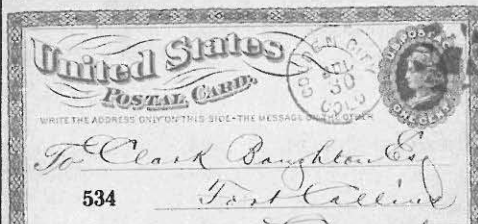 United States
POSTAL CARD.
WRITE THE ADDRESS ONLY ON THIS SIDE-THE MESSAGE ON THE OTHER
GOLDEN CITY
30
COLO
U.S. POSTAGE
ONE CENT
To Clark Boughton Esq
534
Fort Collins